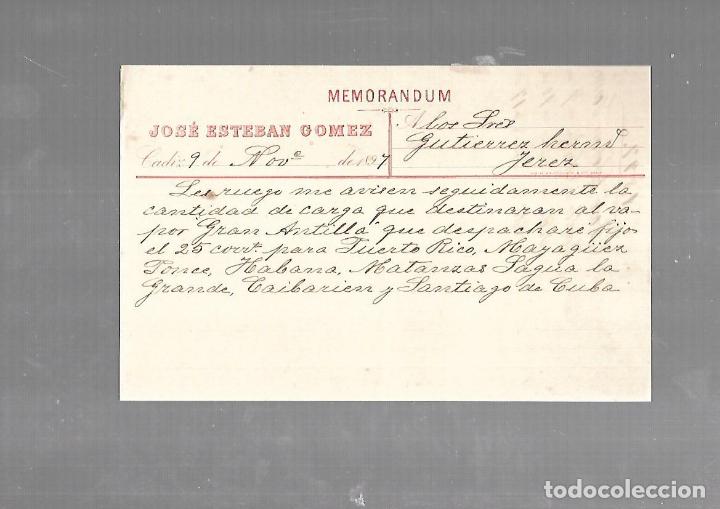 MEMORANDUM
JOSÉ ESTEBAN GOMEZ
Cadiz 9 de Nov.e de 1897
A los Sres
Gutierrez herms
Jerez
Les ruego me avisen seguidamente la
cantidad de carga que destinaran al va-
por "Gran Antilla" que despacharé fijo
el 25 corrt. para Puerto Rico, Mayagüez
Ponce, Habana, Matanzas Sagua la
Grande, Caibarien y Santiago de Cuba
todocoleccion